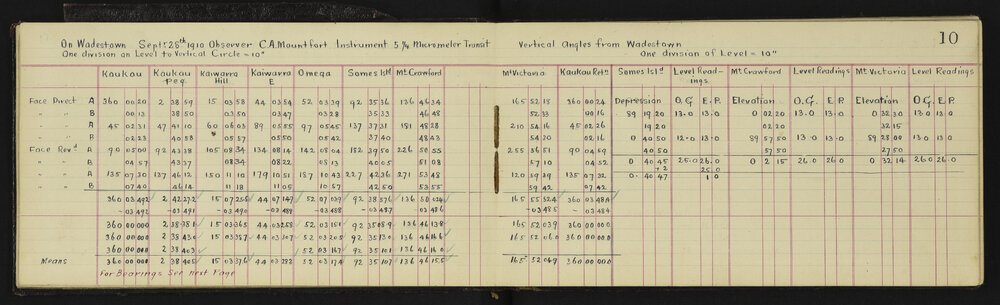 10
On Wadestown Septr 26th 1910 Observer C.A. Mountfort Instrument 5 in Micrometer Transit Vertical Angles from Wadestown
One division on Level to Vertical Circle = 10" One division of Level = 10"
Kaukau Kaukau Peg. Kaiwarra Hill. Kaiwarra E Omega Somes Isld Mt Crawford Mt Victoria Kaukau Retn Somes Isld Level Readings Mt Crawford Level Readings Mt Victoria Level Readings
Face Direct A 360 00 20 2 38 59 15 03 58 44 03 54 52 03 39 92 35 36 136 46 34 165 52 13 360 00 24 Depression O.G. E.P. Elevation O.G. E.P. Elevation O.G. E.P.
" " B 00 13 38 50 03 50 03 47 03 28 35 33 46 48 52 33 00 16 89 19 20 13.0 13.0 0 02 20 13.0 13.0 0 32 30 13.0 13.0
" " A 45 02 31 47 41 10 60 06 03 89 05 55 97 05 45 137 37 31 181 48 28 210 54 16 45 02 26 19 20 02 20 32 15
B 02 23 40 58 05 57 05 50 05 42 37 40 48 43 54 30 02 16 0 40 50 12.0 13.0 89 57 50 13.0 13.0 89 28 00 13.0 13.0
Face Revd A 90 05 00 92 43 38 105 08 34 134 08 14 142 08 04 152 39 50 226 50 55 255 36 51 90 04 59 40 50 57 50 27 50
" " B 04 57 43 37 08 34 08 22 08 13 40 05 51 08 57 10 04 52 0 40 45 25.0 26.0 0 2 15 26.0 26.0 0 32 14 26.0 26.0
" " A 135 07 30 137 46 12 150 11 10 179 10 51 187 10 43 227 42 36 271 53 48 120 59 39 135 07 32 +2 25.0
" " B 07 40 46 14 11 18 11 05 10 57 42 50 53 55 59 42 07 42 0 40 47 1.0
360 03 492 2 42 272 15 07 256 44 07 147 52 07 039 92 38 576 136 50 024 165 55 524 360 03 484
-03 492 -03 491 -03 490 -03 489 -03 488 -03 487 -03 486 -03 485 -03 484
360 00 000 2 38 381 15 03 365 44 03 258 52 03 151 92 35 089 136 46 138 165 52 039 360 00 000
360 00 000 2 38 430 15 03 387 44 03 307 52 03 205 92 35 130 136 46 166 165 52 060 360 00 000
360 00 000 2 38 403 52 03 167 92 35 101 136 46 160 360 00 000
Means 360 00 000 2 38 405 15 03 376 44 03 282 52 03 174 92 35 107 136 46 155 165 52 049 360 00 000
For Bearings See next Page